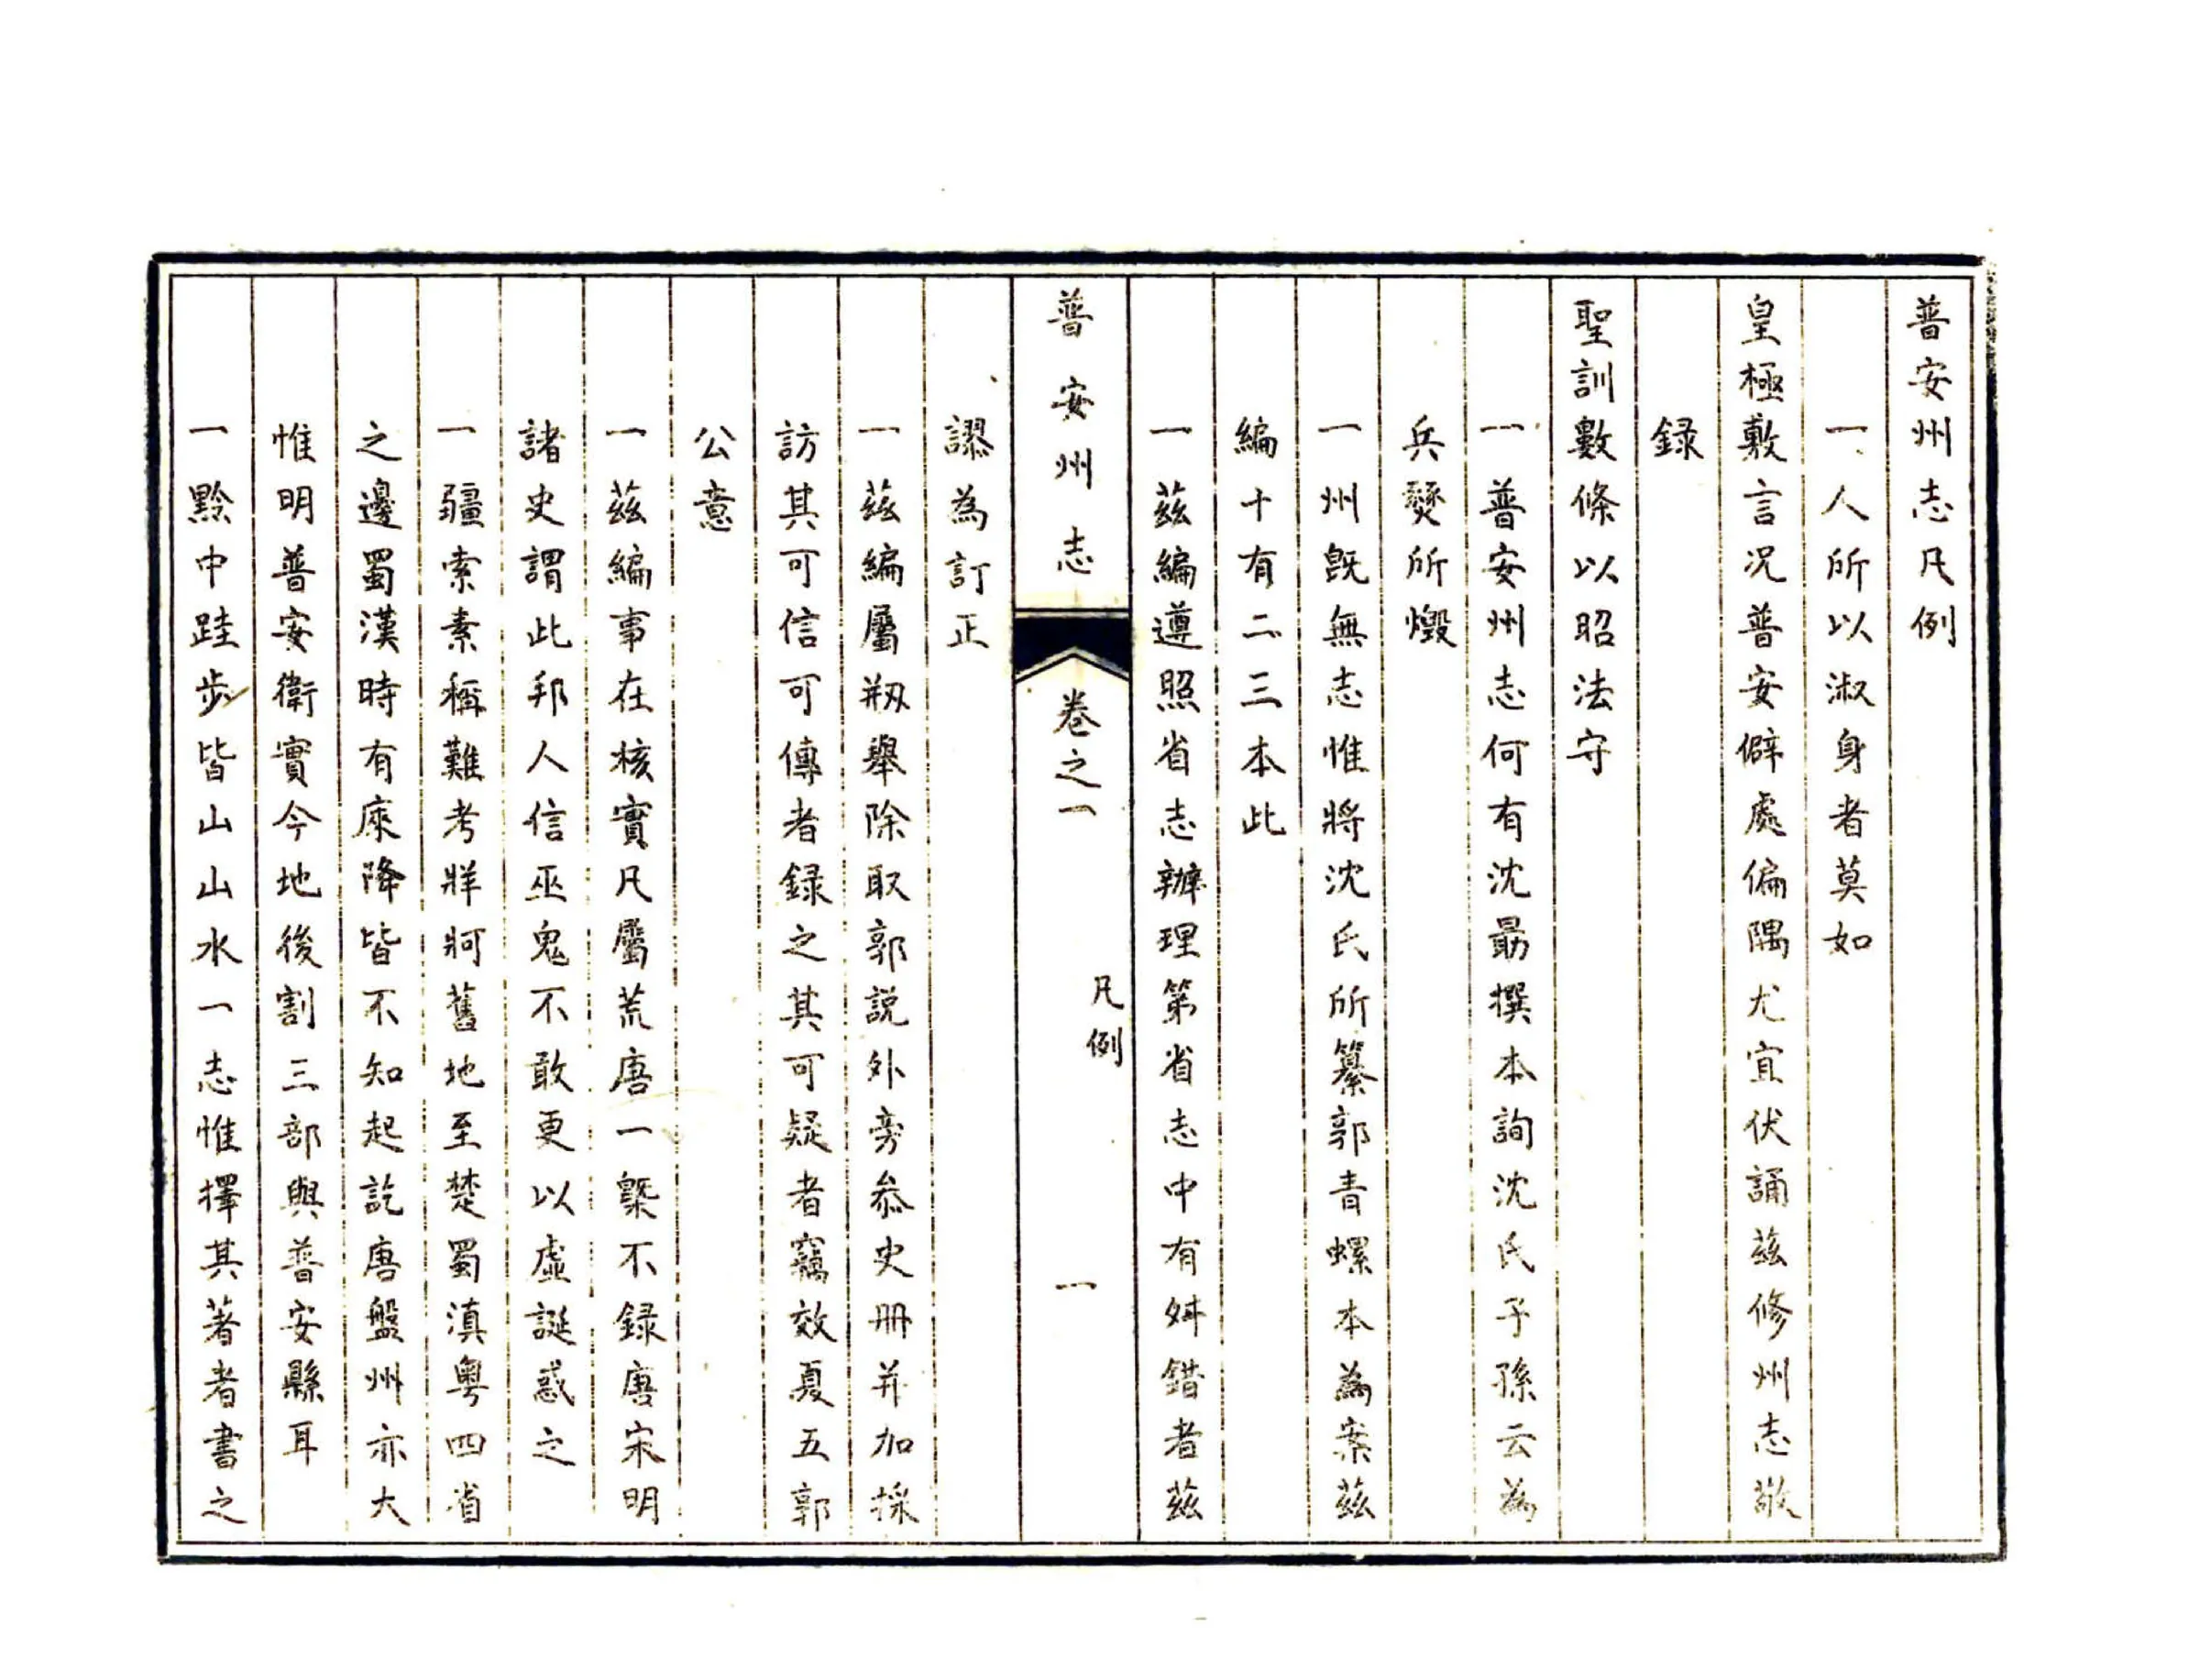 普安州志凡例
一人所以淑身者莫如
皇極敷言况普安僻處偏隅尤宜伏誦茲修州志敬
録
聖訓數條以昭法守
一普安州志何有沈勗撰本詢沈氏子孫云為
兵燹所燬
一州旣無志惟將沈氏所纂郭青螺本為案茲
編十有二三本此
一茲編遵照省志辦理第省志中有舛錯者茲
普安州志 卷之一 凡例 一
謬為訂正
一茲編屬剏舉除取郭説外旁叅史册并加採
訪其可信可傳者録之其可疑者竊效夏五郭
公意
一茲編事在核實凡屬荒唐一槩不録唐宋明
諸史謂此邦人信巫鬼不敢更以虛誕惑之
一疆索素稱難考牂牁舊地至楚蜀滇粤四省
之邊蜀漢時有庲降皆不知起訖唐盤州亦大
惟明普安衛實今地後割三部與普安縣耳
一黔中跬步皆山山水一志惟擇其著者書之